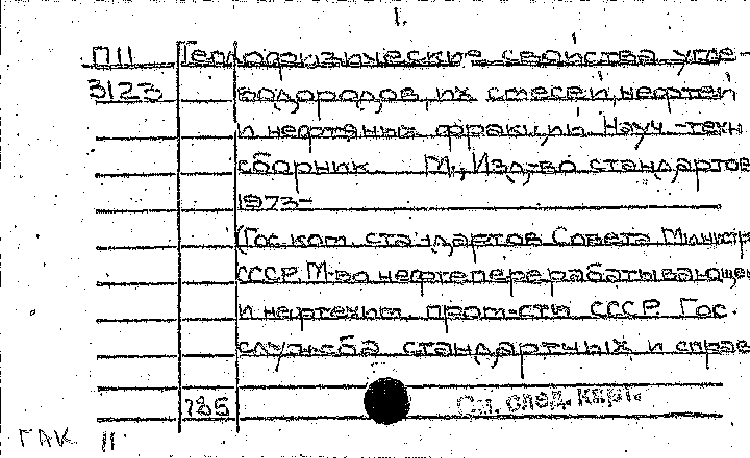 1.
П11 Теплофизические свойства угле-
3123 водородов, их смесей, нефтей
и нефтяных фракций. Науч.-техн
сборник М., Изд-во стандартов
1973-
(Гос. ком. стандартов Совета Министр
СССР. М-во нефтеперерабатывающе
и нефтехим. пром-сти СССР. Гос.
служба стандартных и справ
785
См. след. карт.
ГАК 11